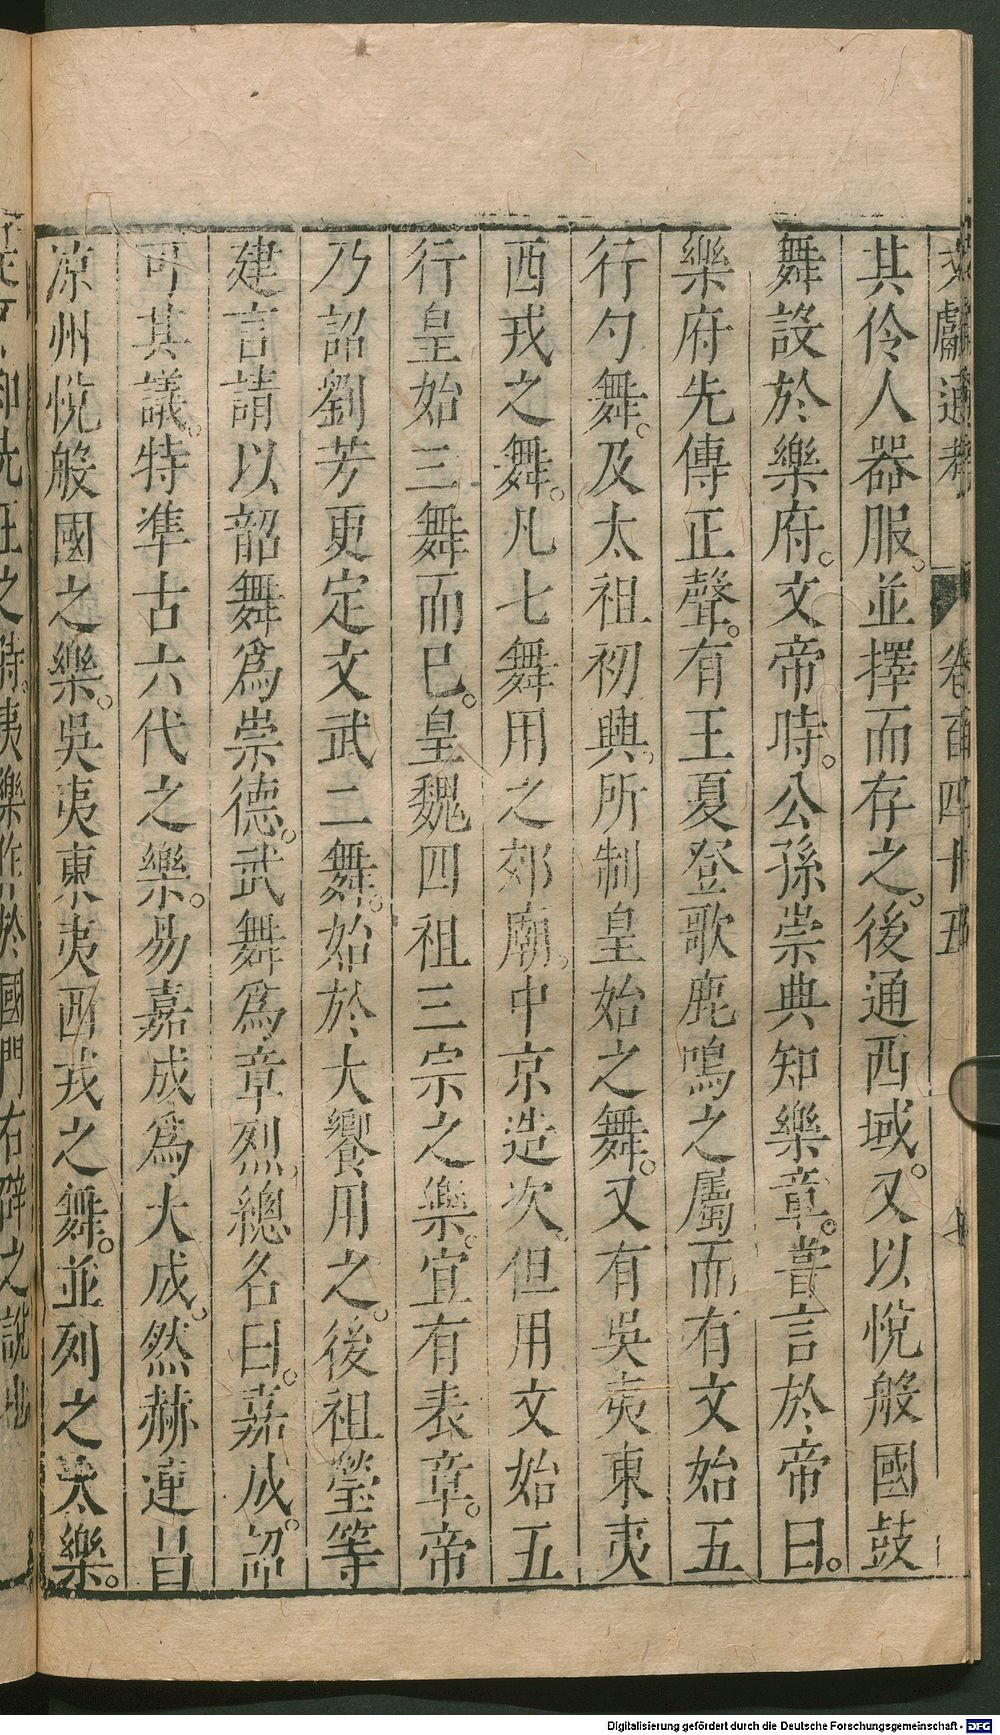 文獻通考 卷百四十五
其伶人器服。並擇而存之。後通西域。又以悅般國鼓
舞設於樂府。文帝時。公孫崇典知樂章。嘗言於帝曰。
樂府先傳正聲。有王夏登歌鹿鳴之屬而有文始五
行勺舞。及太祖初興。所制皇始之舞。又有吳夷東夷
西戎之舞。凡七舞用之郊廟。中京造次。但用文始五
行皇始三舞而已。皇魏四祖三宗之樂。宜有表章。帝
乃詔劉芳更定文武二舞。始於大饗用之。後祖瑩等
建言請以韶舞爲崇德。武舞爲章烈。總名曰。嘉成。詔
可其議。特準古六代之樂。易嘉成爲大成。然赫連昌
凉州悅般國之樂。吳夷東夷西戎之舞。並列之太樂。
先王之時。夷樂作於國門右辟之說也
Digitalisierung gefördert durch die Deutsche Forschungsgemeinschaft - DFG